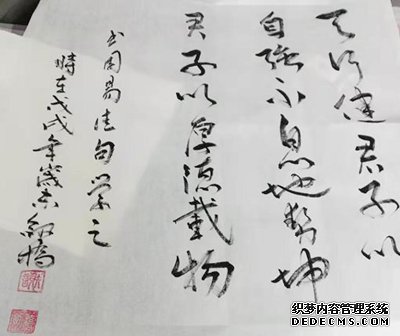 天行健君子以
自强不息地势坤
君子以厚德载物
书周易佳句学之
时在戊戌年岁末
织梦内容管理系统
DEDECMS.COM